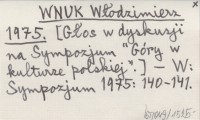 WNUK Włodzimierz
1975. [Głos w dyskusji
na Sympozjum "Góry w
kulturze polskiej".] — W:
Sympozjum 1975: 140-141.